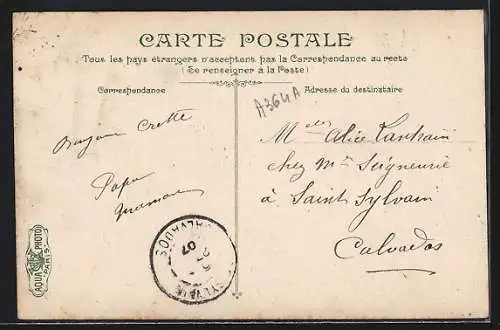 CARTE POSTALE
Tous les pays étrangers n'acceptent pas la Correspondance au recto
(Se renseigner à la Poste)
Correspondance
Adresse du destinataire
A364A
Papa
Maman
AQUA PHOTO
PARIS
CALVADOS
07
Alice
chez Mr Seigneurie
à Saint Sylvain
Calvados